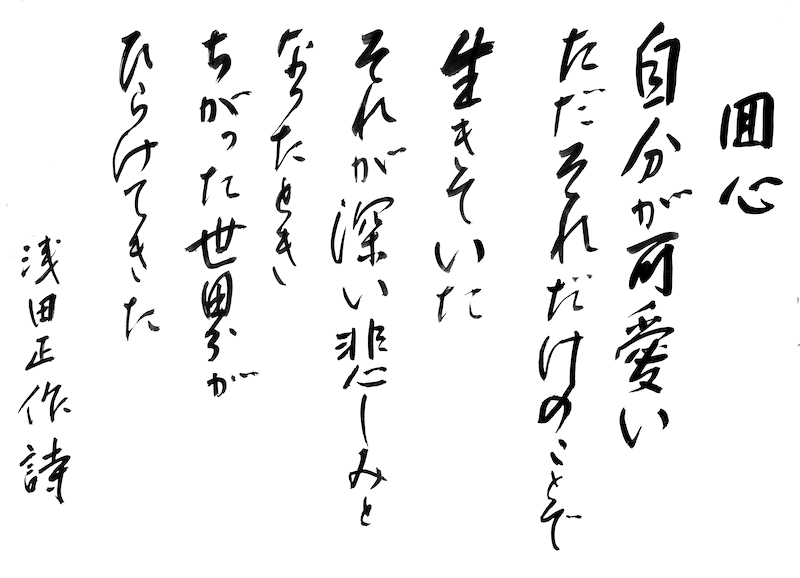 回心
自分が可愛い
ただそれだけのことで
生きていた
それが深い悲しみと
なったとき
ちがった世界が
ひらけてきた
浅田正作 詩